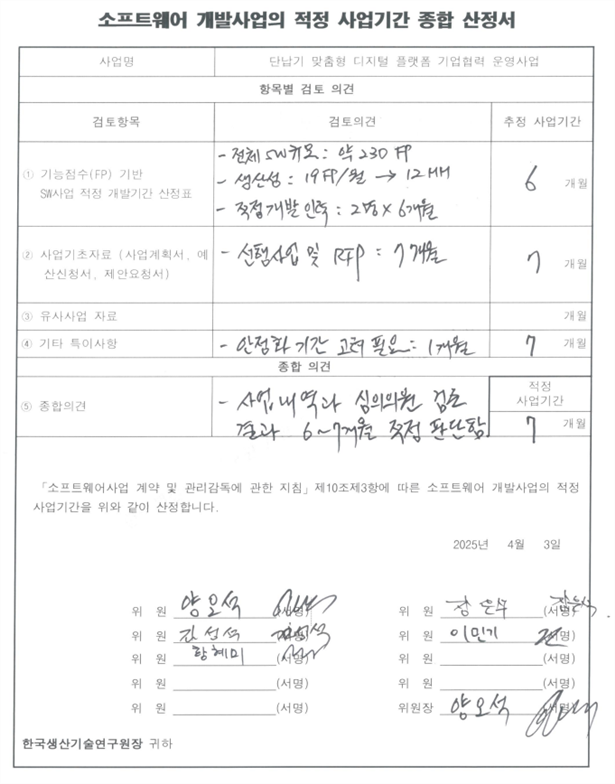 소프트웨어 개발사업의 적정 사업기간 종합 산정서
사업명 단납기 맞춤형 디지털 플랫폼 기업협력 운영사업
항목별 검토 의견
검토항목 검토의견 추정 사업기간
① 기능점수(FP) 기반
SW사업 적정 개발기간 산정표
- 전체 SW규모 : 약 230 FP
- 생산성 : 19FP/월 → 12MM
- 적정개발인력 : 2명 × 6개월
6 개월
② 사업기초자료 (사업계획서, 예
산신청서, 제안요청서)
- 선행사업 및 RFP : 7개월
7 개월
③ 유사사업 자료 개월
④ 기타 특이사항 - 안정화 기간 고려 필요 : 1개월 7 개월
종합 의견
⑤ 종합의견
- 사업내역과 심의위원 검토
결과 6~7개월 적정 판단함
적정
사업기간
7 개월
「소프트웨어사업 계약 및 관리감독에 관한 지침」제10조제3항에 따른 소프트웨어 개발사업의 적정
사업기간을 위와 같이 산정합니다.
2025년 4월 3일
위 원 양오석 (서명) 위 원 (서명)
위 원 (서명) 위 원 이민기 (서명)
위 원 황혜미 (서명) 위 원 (서명)
위 원 (서명) 위 원 (서명)
위 원 (서명) 위원장 양오석 (서명)
한국생산기술연구원장 귀하